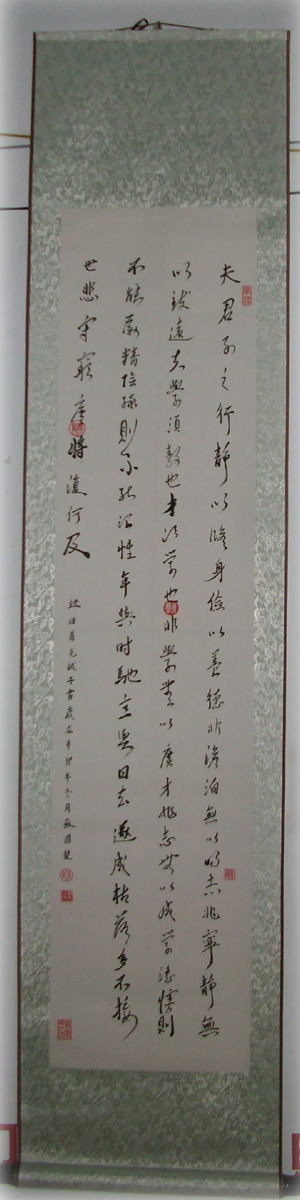 夫君子之行靜以修身儉以養德非澹泊無以明志非寧靜無
以致遠夫學須靜也才須學也非學無以廣才非志無以成學淫慢則
不能勵精險躁則不能治性年與時馳意與日去遂成枯落多不接
世悲守窮廬將復何及
錄諸葛亮誡子書歲在辛卯年冬月